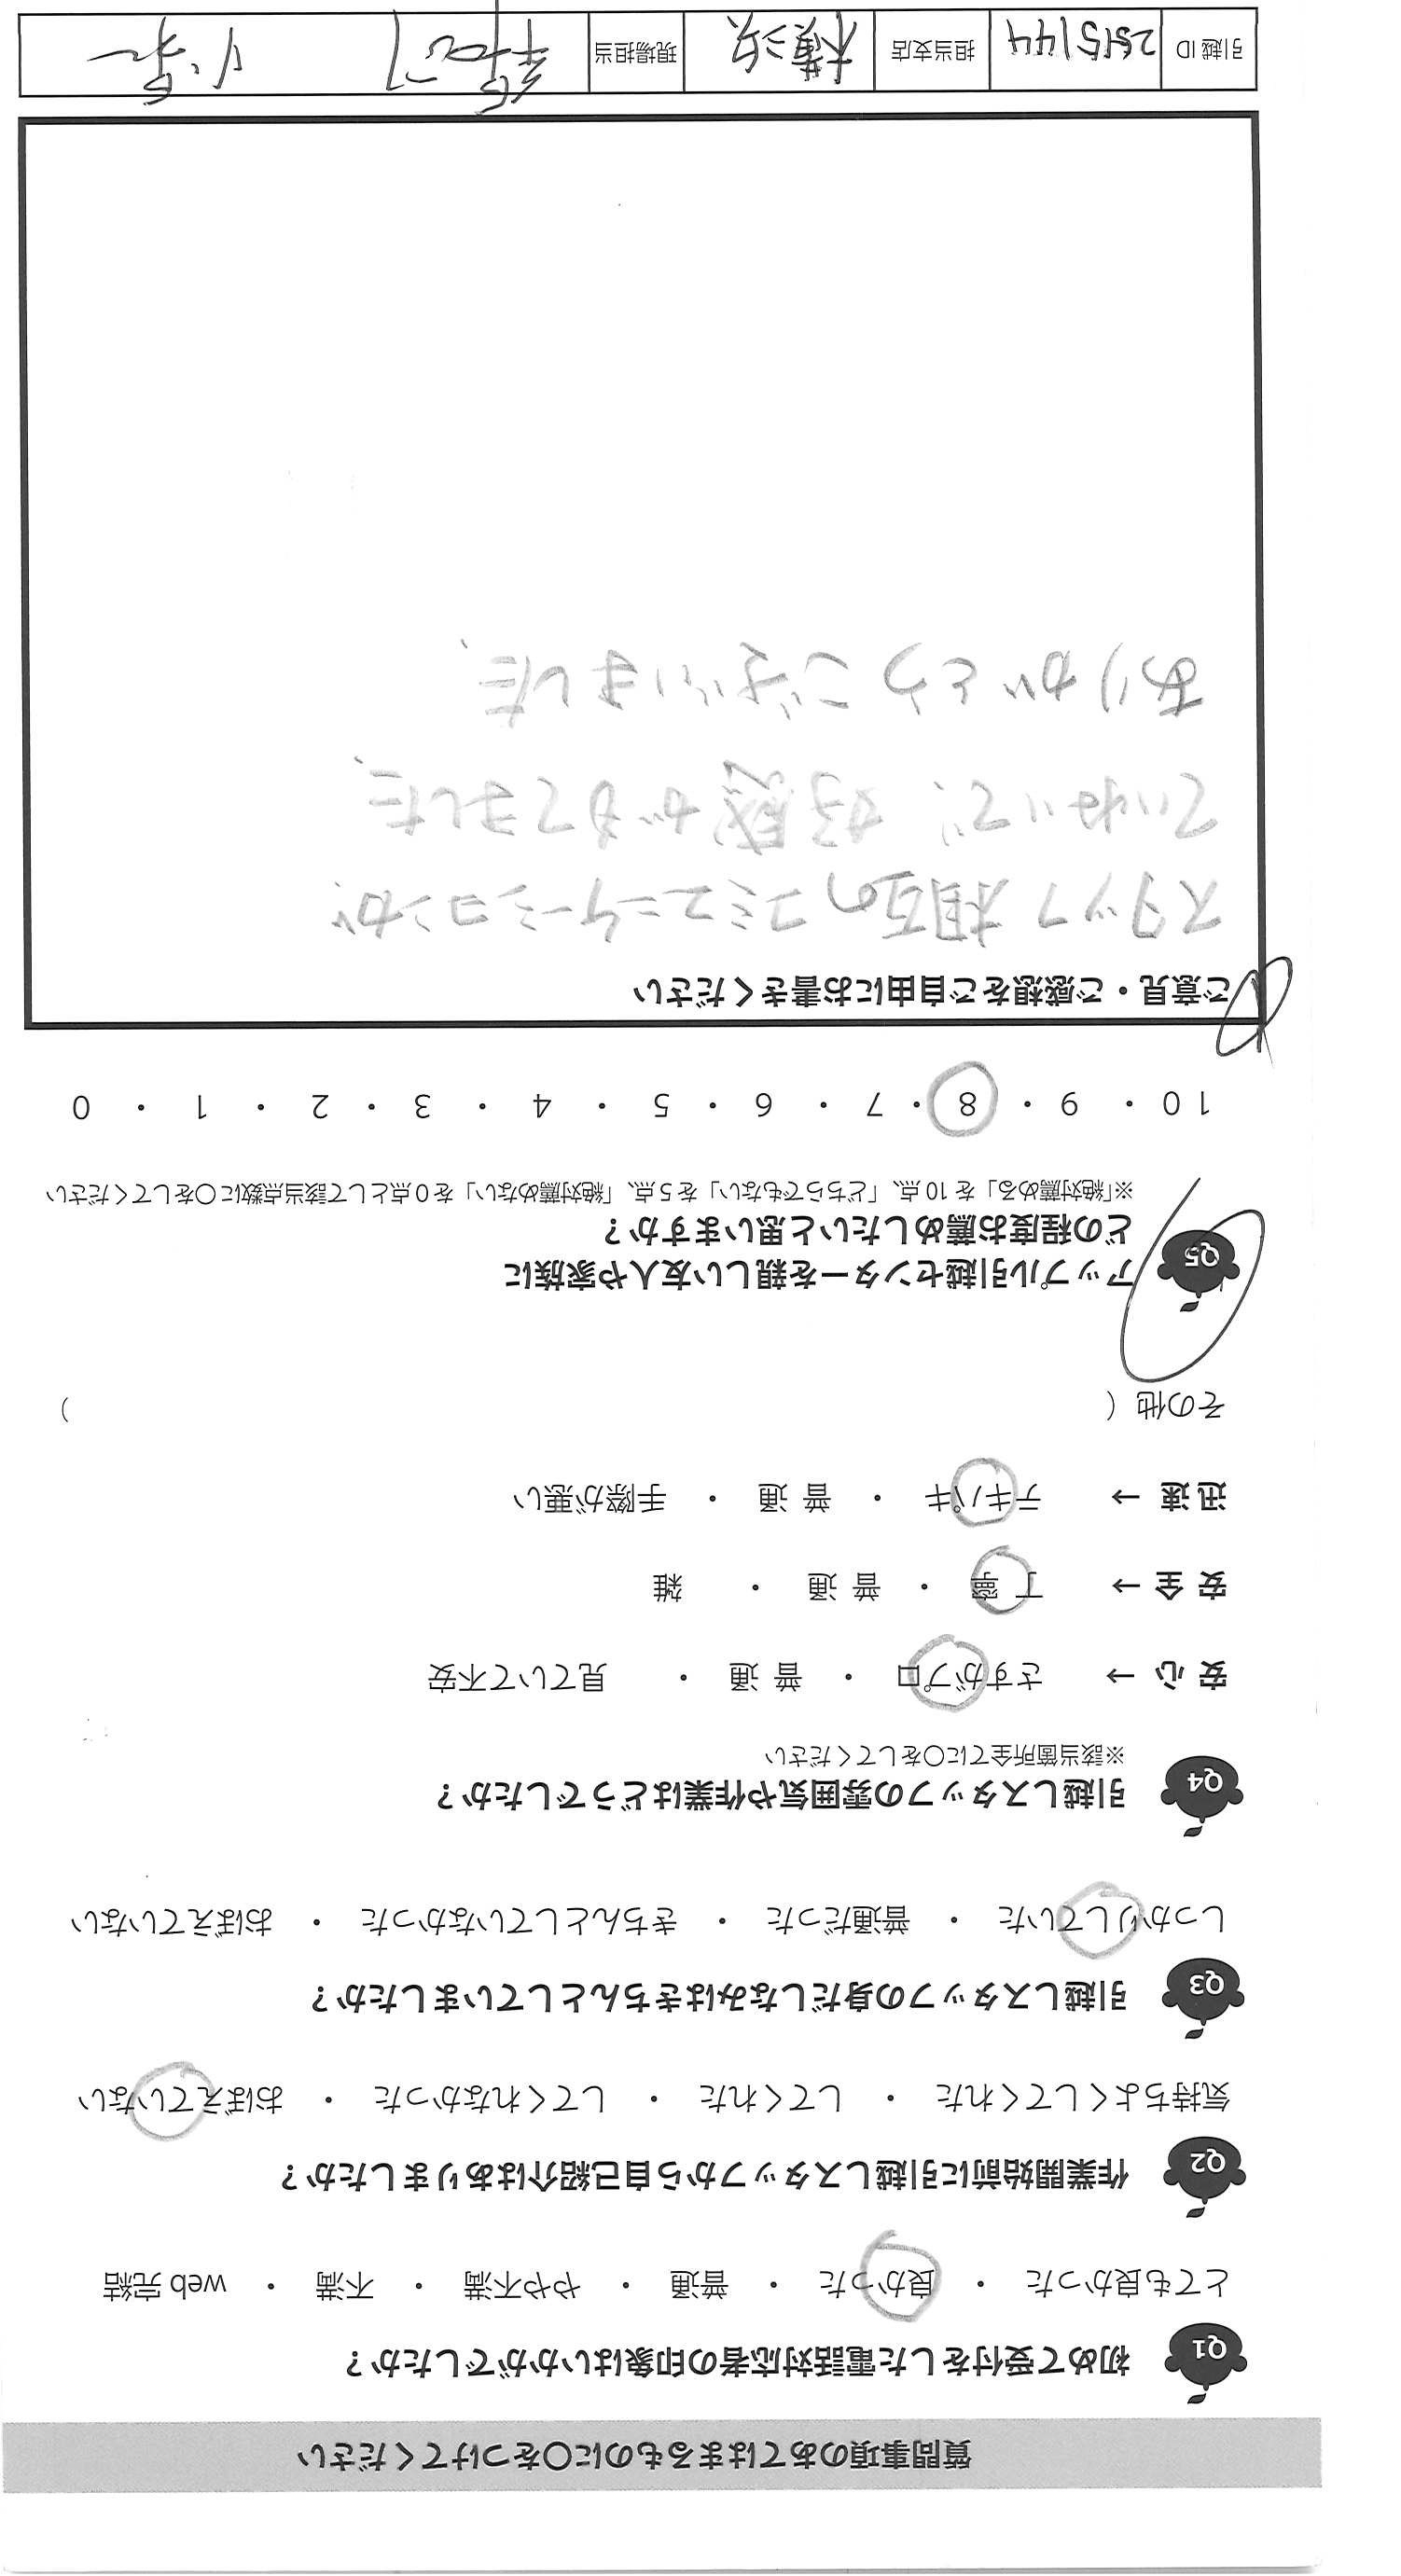 質問事項のあてはまるものに〇をつけてください
Q1 初めて受付をした電話対応者の印象はいかがでしたか？
とても良かった ・ 良かった ・ 普通 ・ やや不満 ・ 不満 ・ web 完結
Q2 作業開始前に引越しスタッフから自己紹介はありましたか？
気持ちよくしてくれた ・ してくれた ・ してくれなかった ・ おぼえていない
Q3 引越しスタッフの身だしなみはきちんとしていましたか？
しっかりしていた ・ 普通だった ・ きちんとしていなかった ・ おぼえていない
Q4 引越しスタッフの雰囲気や作業はどうでしたか？
※該当箇所全てに〇をしてください
安 心 → さすがプロ ・ 普 通 ・ 見ていて不安
安 全 → 丁 寧 ・ 普 通 ・ 雑
迅 速 → テキパキ ・ 普 通 ・ 手際が悪い
その他（ ）
Q5 アップル引越センターを親しい友人や家族に
どの程度お薦めしたいと思いますか？
※「絶対薦める」を 10 点、「どちらでもない」を 5 点、「絶対薦めない」を 0 点として該当点数に〇をしてください
10 ・ 9 ・ 8 ・ 7 ・ 6 ・ 5 ・ 4 ・ 3 ・ 2 ・ 1 ・ 0
ご意見・ご感想をご自由にお書きください
スタッフ相互のコミュニケーションが、
ていねいで、好感がもてました、
ありがとうございました、
引越 ID 2515144 担当支店 横浜 現場担当